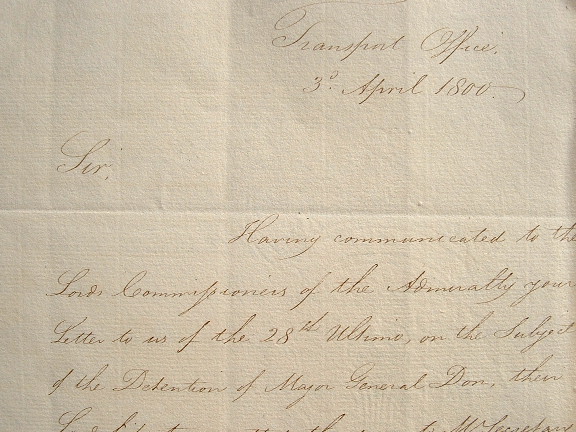 Transport Office.
3d. April 1800.
Sir,
Having communicated to the
Lords Commissioners of the Admiralty your
Letter to us of the 28th Ultimo, on the Subject
of the Detention of Major General Don, their